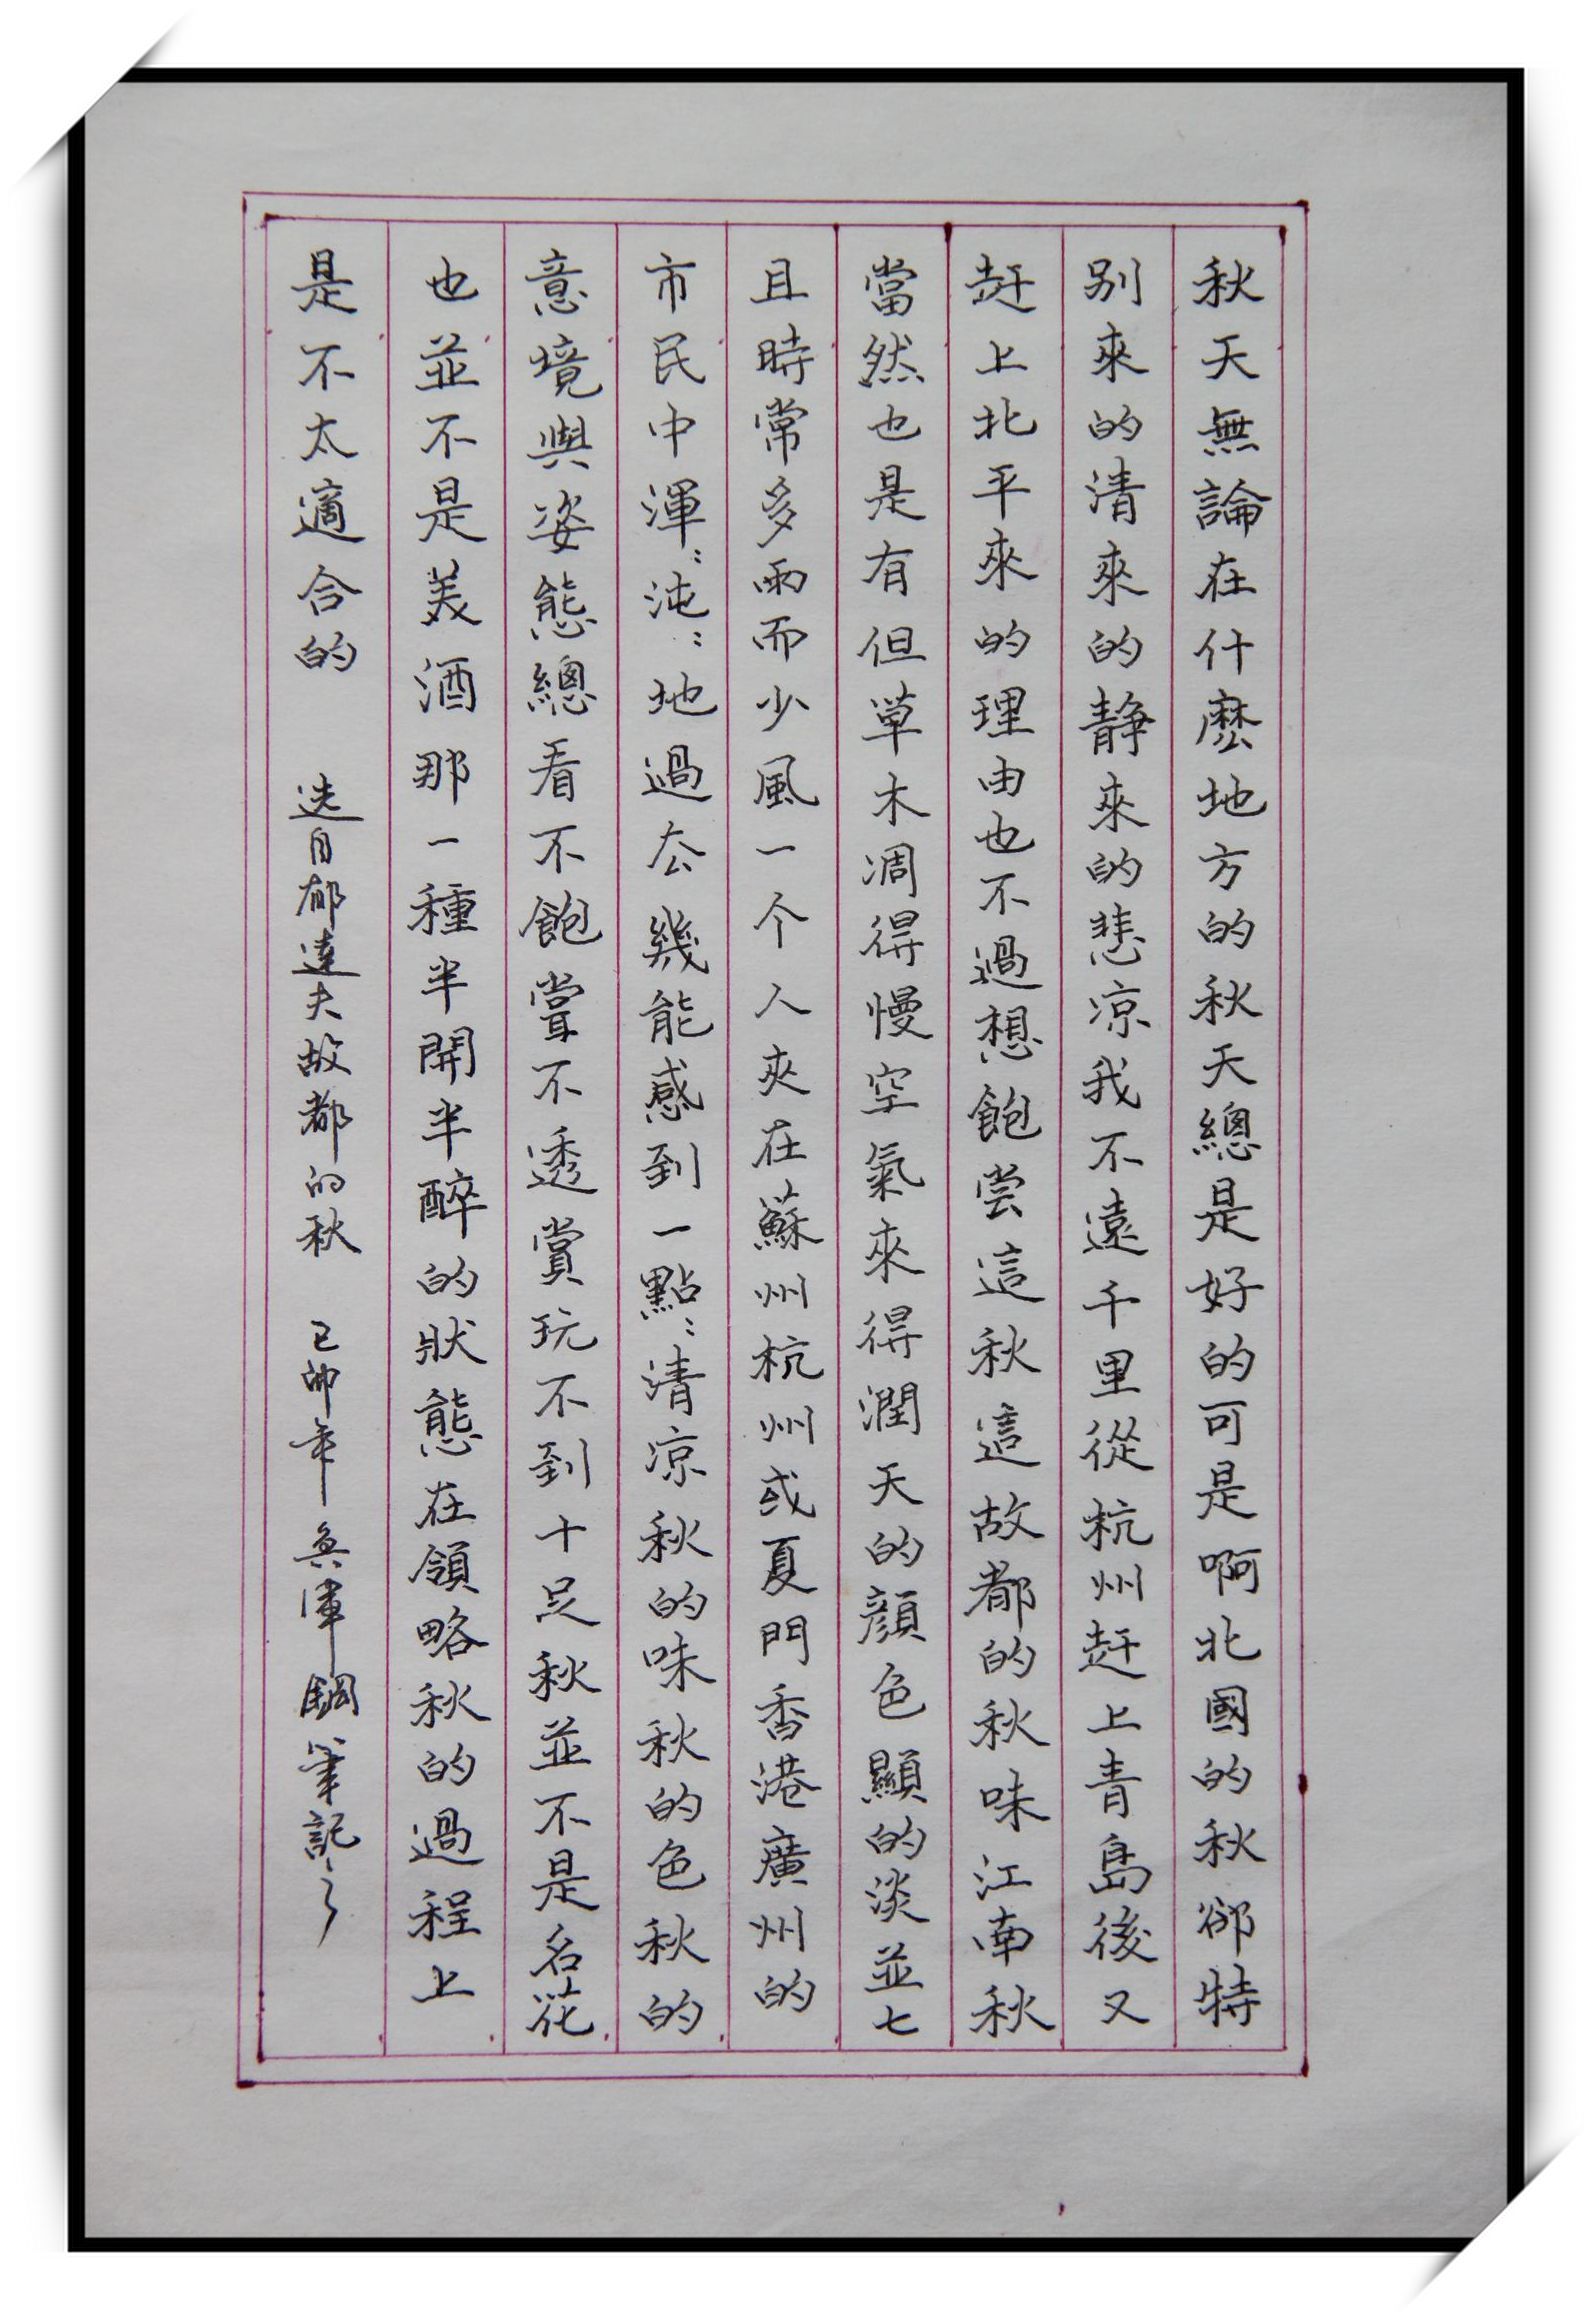 秋天無論在什麽地方的秋天總是好的可是啊北國的秋卻特
别來的清來的静來的悲凉我不遠千里從杭州赶上青島後又
赶上北平來的理由也不過想飽尝這秋這故都的秋味江南秋
當然也是有但草木凋得慢空氣來得潤天的顔色顯的淡並七
且時常多雨而少風一个人夾在蘇州杭州或夏門香港廣州的
市民中渾::沌::地過厺幾能感到一點::清凉秋的味秋的色秋的
意境與姿態總看不飽嘗不透賞玩不到十足秋並不是名花
也並不是美酒那一種半開半醉的狀態在領略秋的過程上
是不太適合的 选自郁達夫故都的秋 己卯年 鋼筆記之